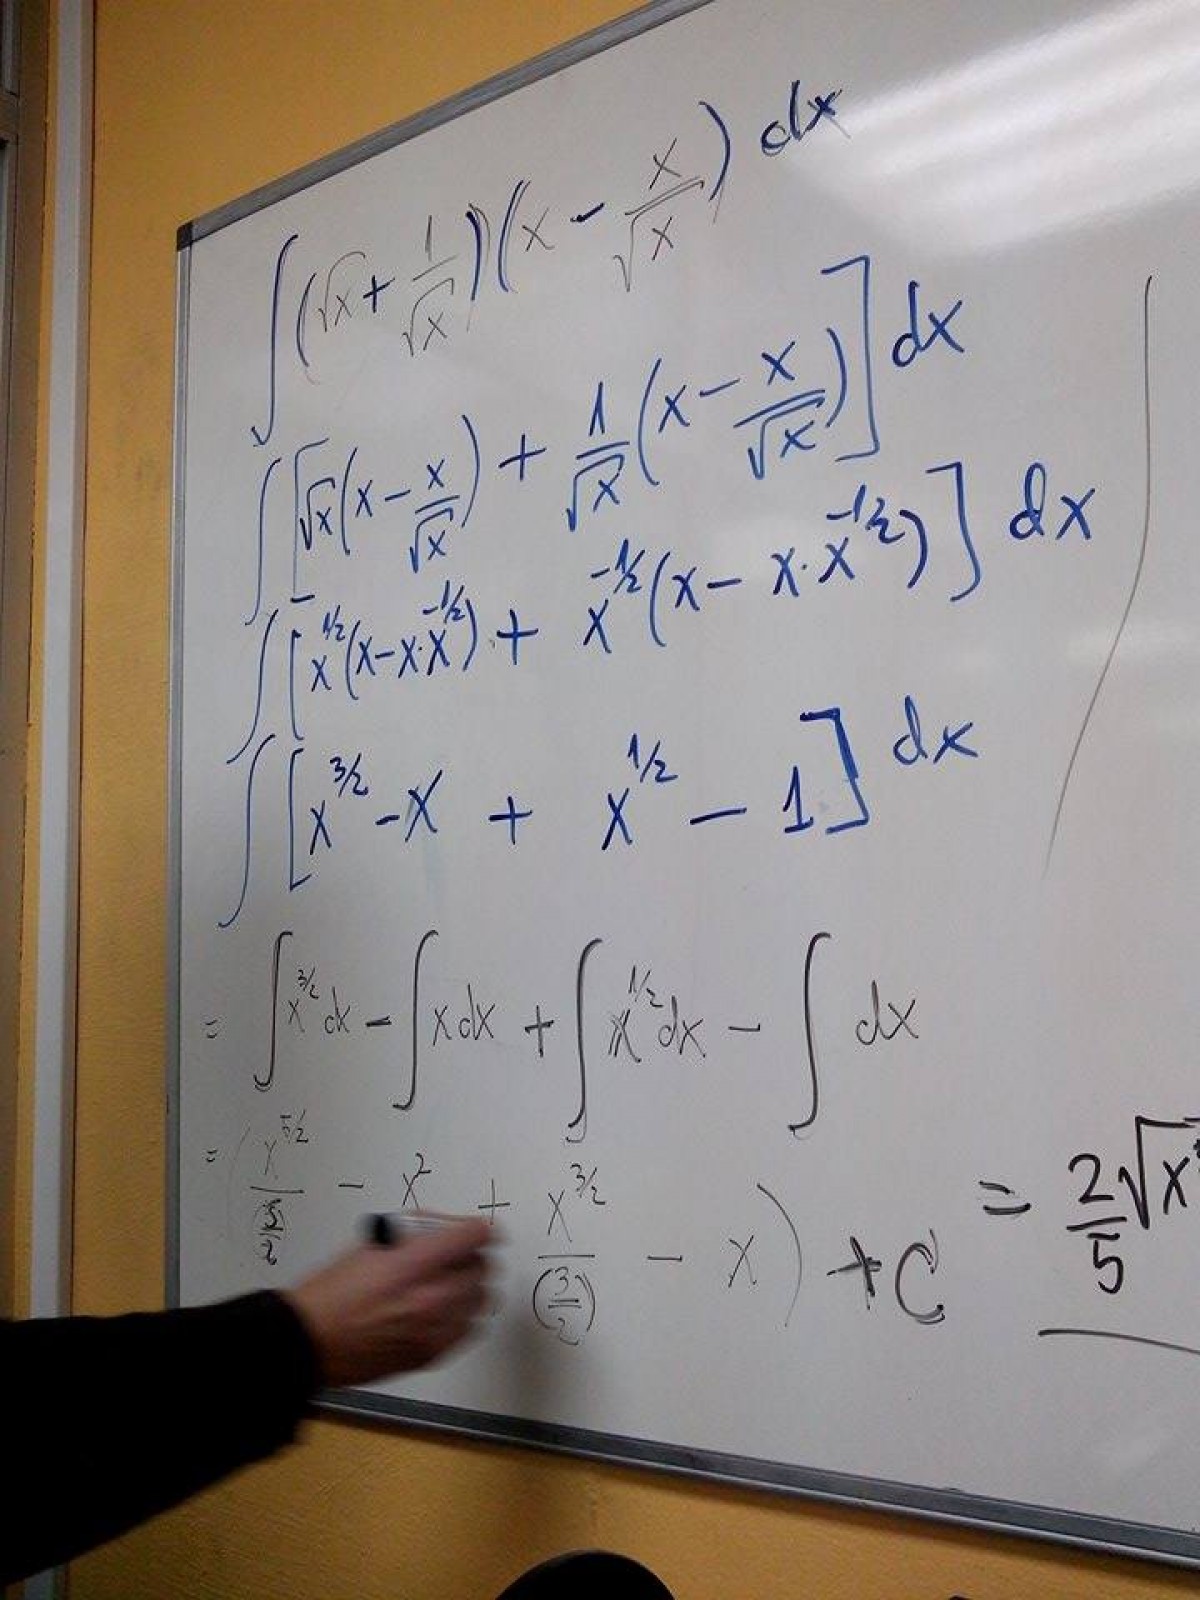 ∫(√x + 1/√x)(x - x/√x) dx
∫[√x(x - x/√x) + 1/√x(x - x/√x)] dx
∫[x^1/2(x - x·x^-1/2) + x^-1/2(x - x·x^-1/2)] dx
∫[x^3/2 - x + x^1/2 - 1] dx
= ∫x^3/2 dx - ∫x dx + ∫x^1/2 dx - ∫ dx
= (x^5/2/(5/2) - x^2 + x^3/2/(3/2) - x) + C = 2/5 √x